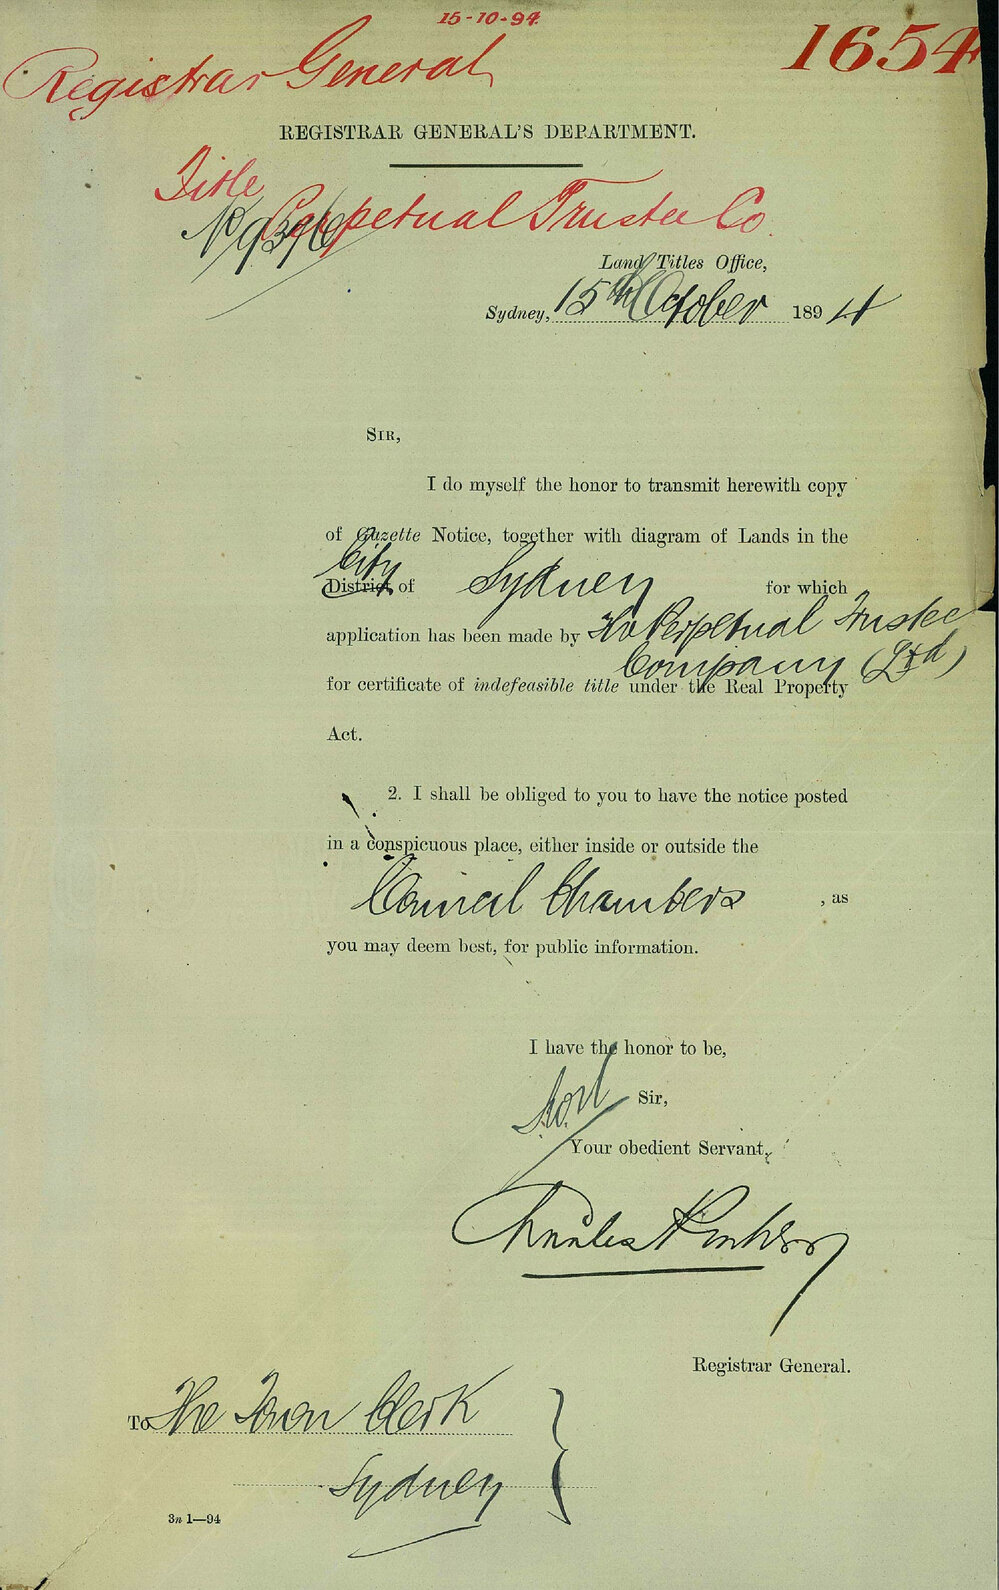 15-10-94
1654
Registrar General
REGISTRAR GENERAL'S DEPARTMENT.
Title
Perpetual Trustee Co.
No 9396
Land Titles Office,
Sydney, 15th October 1894
SIR,
I do myself the honor to transmit herewith copy
of Gazette Notice, together with diagram of Lands in the
City
District of Sydney for which
application has been made by The Perpetual Trustee
Company (Ltd)
for certificate of indefeasible title under the Real Property
Act.
2. I shall be obliged to you to have the notice posted
in a conspicuous place, either inside or outside the
Council Chambers , as
you may deem best, for public information.
I have the honor to be,
Sir,
Your obedient Servant,
Charles
Registrar General.
To The Town Clerk
Sydney
3n 1—94